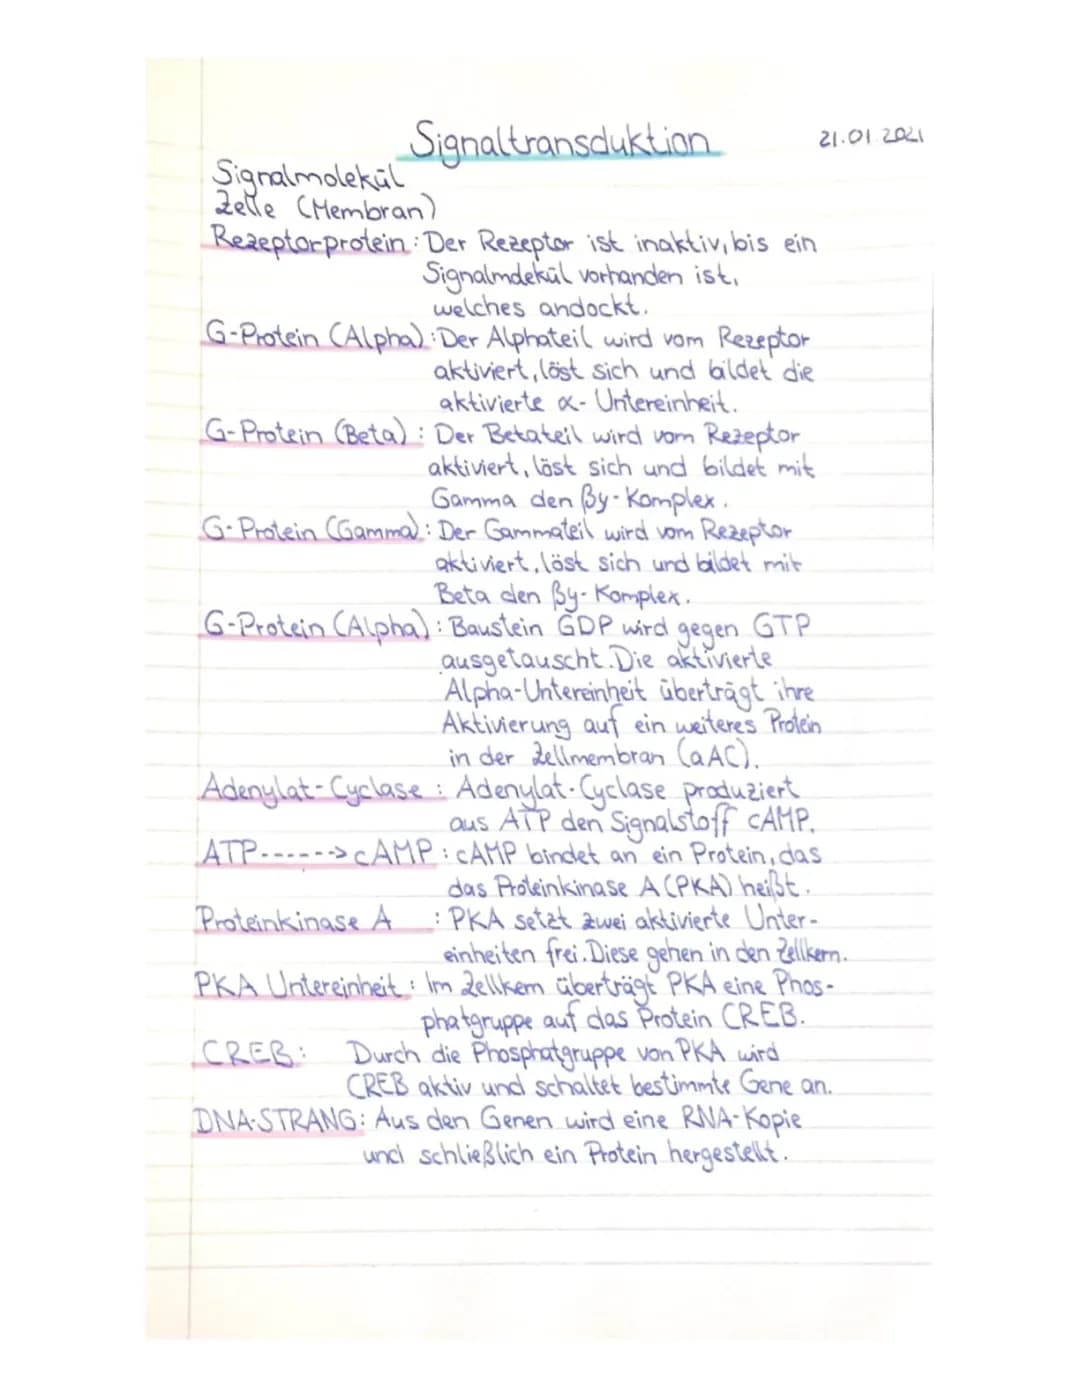 Signaltransduktion 21.01.2021
Signalmolekül
Zelle (Membran)
Rezeptorprotein: Der Rezeptor ist inaktiv, bis ein
Signalmolekül vorhanden ist,
welches andockt.
G-Protein (Alpha): Der Alphateil wird vom Rezeptor
aktiviert, löst sich und bildet die
aktivierte α-Untereinheit.
G-Protein (Beta): Der Betateil wird vom Rezeptor
aktiviert, löst sich und bildet mit
Gamma den βγ-Komplex.
G-Protein (Gamma): Der Gammateil wird vom Rezeptor
aktiviert, löst sich und bildet mit
Beta den βγ-Komplex.
G-Protein (Alpha): Baustein GDP wird gegen GTP
ausgetauscht. Die aktivierte
Alpha-Untereinheit überträgt ihre
Aktivierung auf ein weiteres Protein
in der Zellmembran (aAC).
Adenylat-Cyclase: Adenylat-Cyclase produziert
aus ATP den Signalstoff cAMP.
ATP------>cAMP: cAMP bindet an ein Protein, das
das Proteinkinase A (PKA) heißt.
Proteinkinase A : PKA setzt zwei aktivierte Unter-
einheiten frei. Diese gehen in den Zellkern.
PKA Untereinheit: Im Zellkern überträgt PKA eine Phos-
phatgruppe auf das Protein CREB.
CREB: Durch die Phosphatgruppe von PKA wird
CREB aktiv und schaltet bestimmte Gene an.
DNA-STRANG: Aus den Genen wird eine RNA-Kopie
und schließlich ein Protein hergestellt.